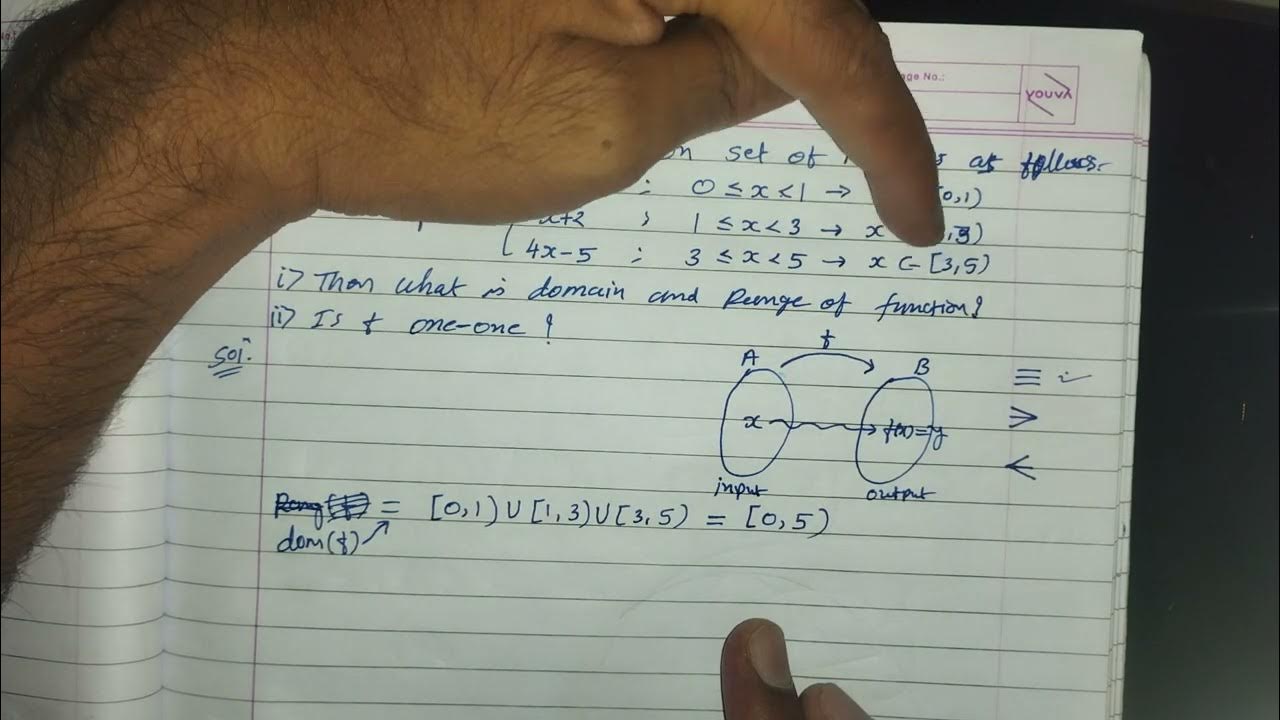 age No.:
YOUVA
on set of as follows.
: 0 ≤ x < 1 → 0,1)
x+2 ; 1 ≤ x < 3 → x ,3)
4x-5 ; 3 ≤ x < 5 → x ∈ [3,5)
i) Then what is domain and Range of function?
ii) Is f one-one ?
Sol:
f
A B
x f(x)=y
input output
≡ ✓
>
<
= [0,1) U [1,3) U [3,5) = [0,5)
dom(f)